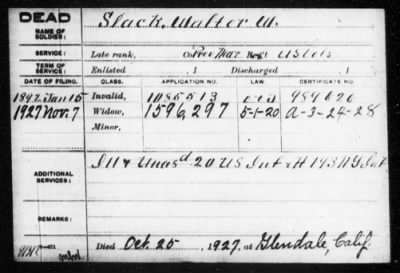 DEAD
NAME OF SOLDIER:
Slack, Walter W.
SERVICE:
Late rank, Co. Regt. US Vols
TERM OF SERVICE:
Enlisted , 1 Discharged , 1
DATE OF FILING. CLASS. APPLICATION NO. LAW. CERTIFICATE NO.
1892 Jan 15 Invalid, 1085513
1927 Nov. 7 Widow, 1596,297 5-1-20 A-3-24-28
Minor,
ADDITIONAL SERVICES:
20 US Inf & H 193 N.Y. Inf
REMARKS:
Died Oct. 25, 1927, at Glendale, Calif.